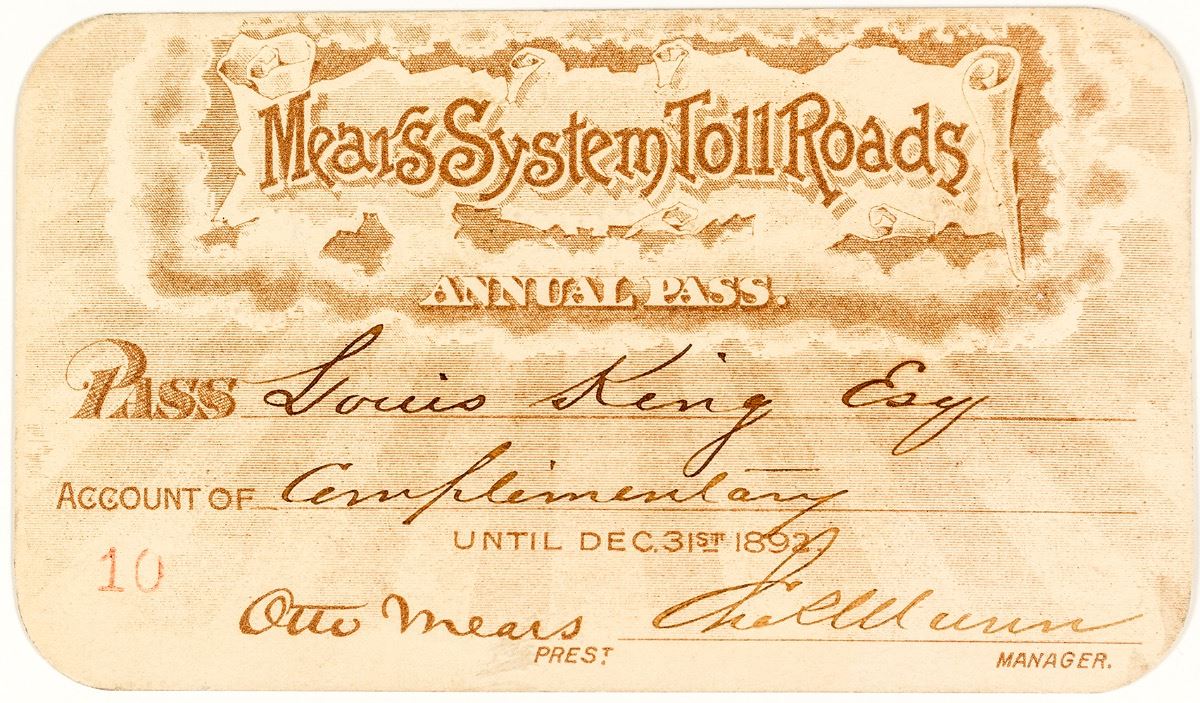 Mears System Toll Roads
ANNUAL PASS.
PASS Louis King Esq
ACCOUNT OF Complimentary
UNTIL DEC. 31ST 1892
10
Otto Mears
PREST
MANAGER.